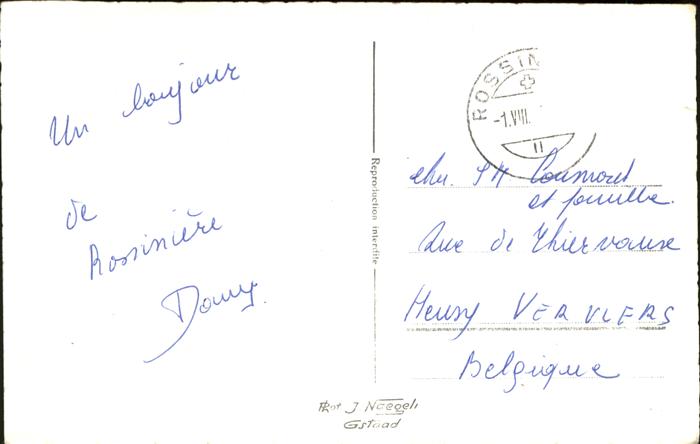 Un bonjour
de
Rossinière
Dany.
ROSSIN
-1.VIII.
11
Reproduction interdite
et famille.
Rue de Thiervaux
Heusy VERVIERS
Belgique
Phot J Naegeli
Gstaad